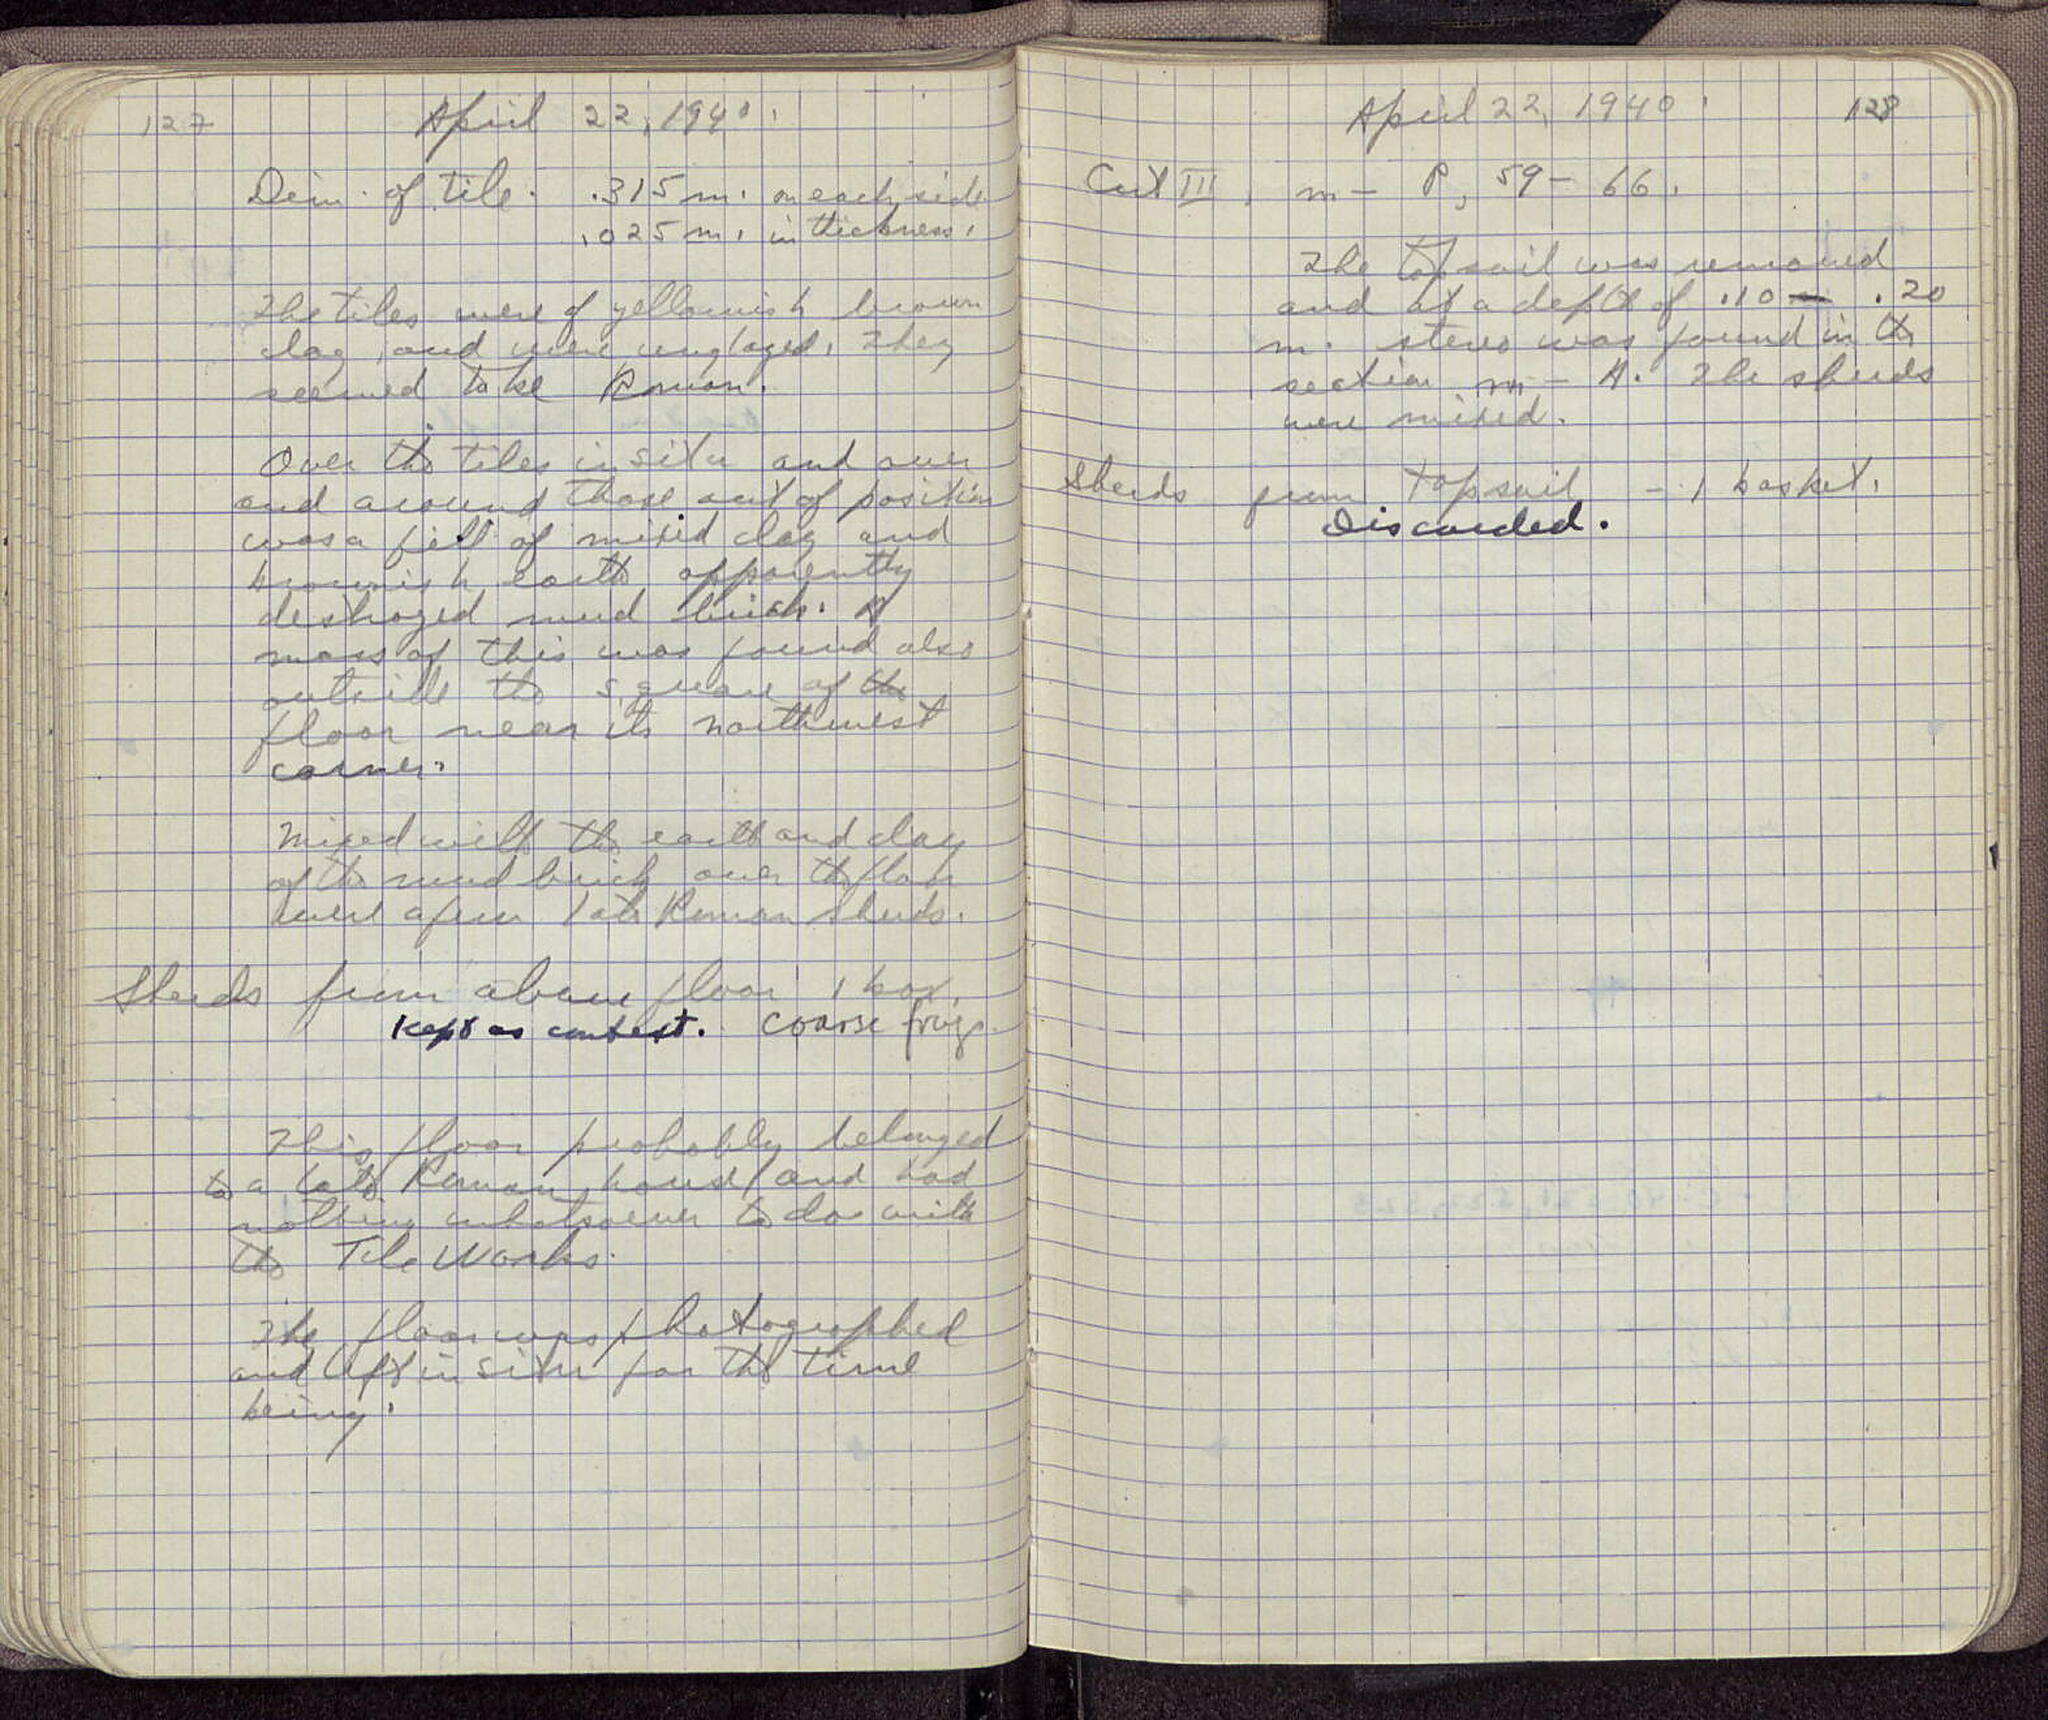 127 April 22, 1940.
Dim. of tile. .315 m. on each side
.025 m. in thickness.
The tiles were of yellowish brown
clay, and were unglazed. They
seemed to be Roman.
Over the tiles in situ and over
and around those out of position
was a fill of mixed clay and
brownish earth apparently
destroyed mud brick. A
mass of this was found also
outside the square of the
floor near its northwest
corner.
Mixed with the earth and clay
of the mud brick over the floor
were a few late Roman sherds.
Sherds from above floor 1 box.
Kept as context. Coarse frags.
This floor probably belonged
to a late Roman house and had
nothing whatsoever to do with
the Tile Works.
The floor was photographed
and left in situ for the time
being.
April 22, 1940. 128
Cut III, M - P, 59 - 66.
The topsoil was removed
and at a depth of .10 - .20
m. stereo was found in the
section M - . The sherds
were mixed.
Sherds from topsoil - 1 basket.
Discarded.